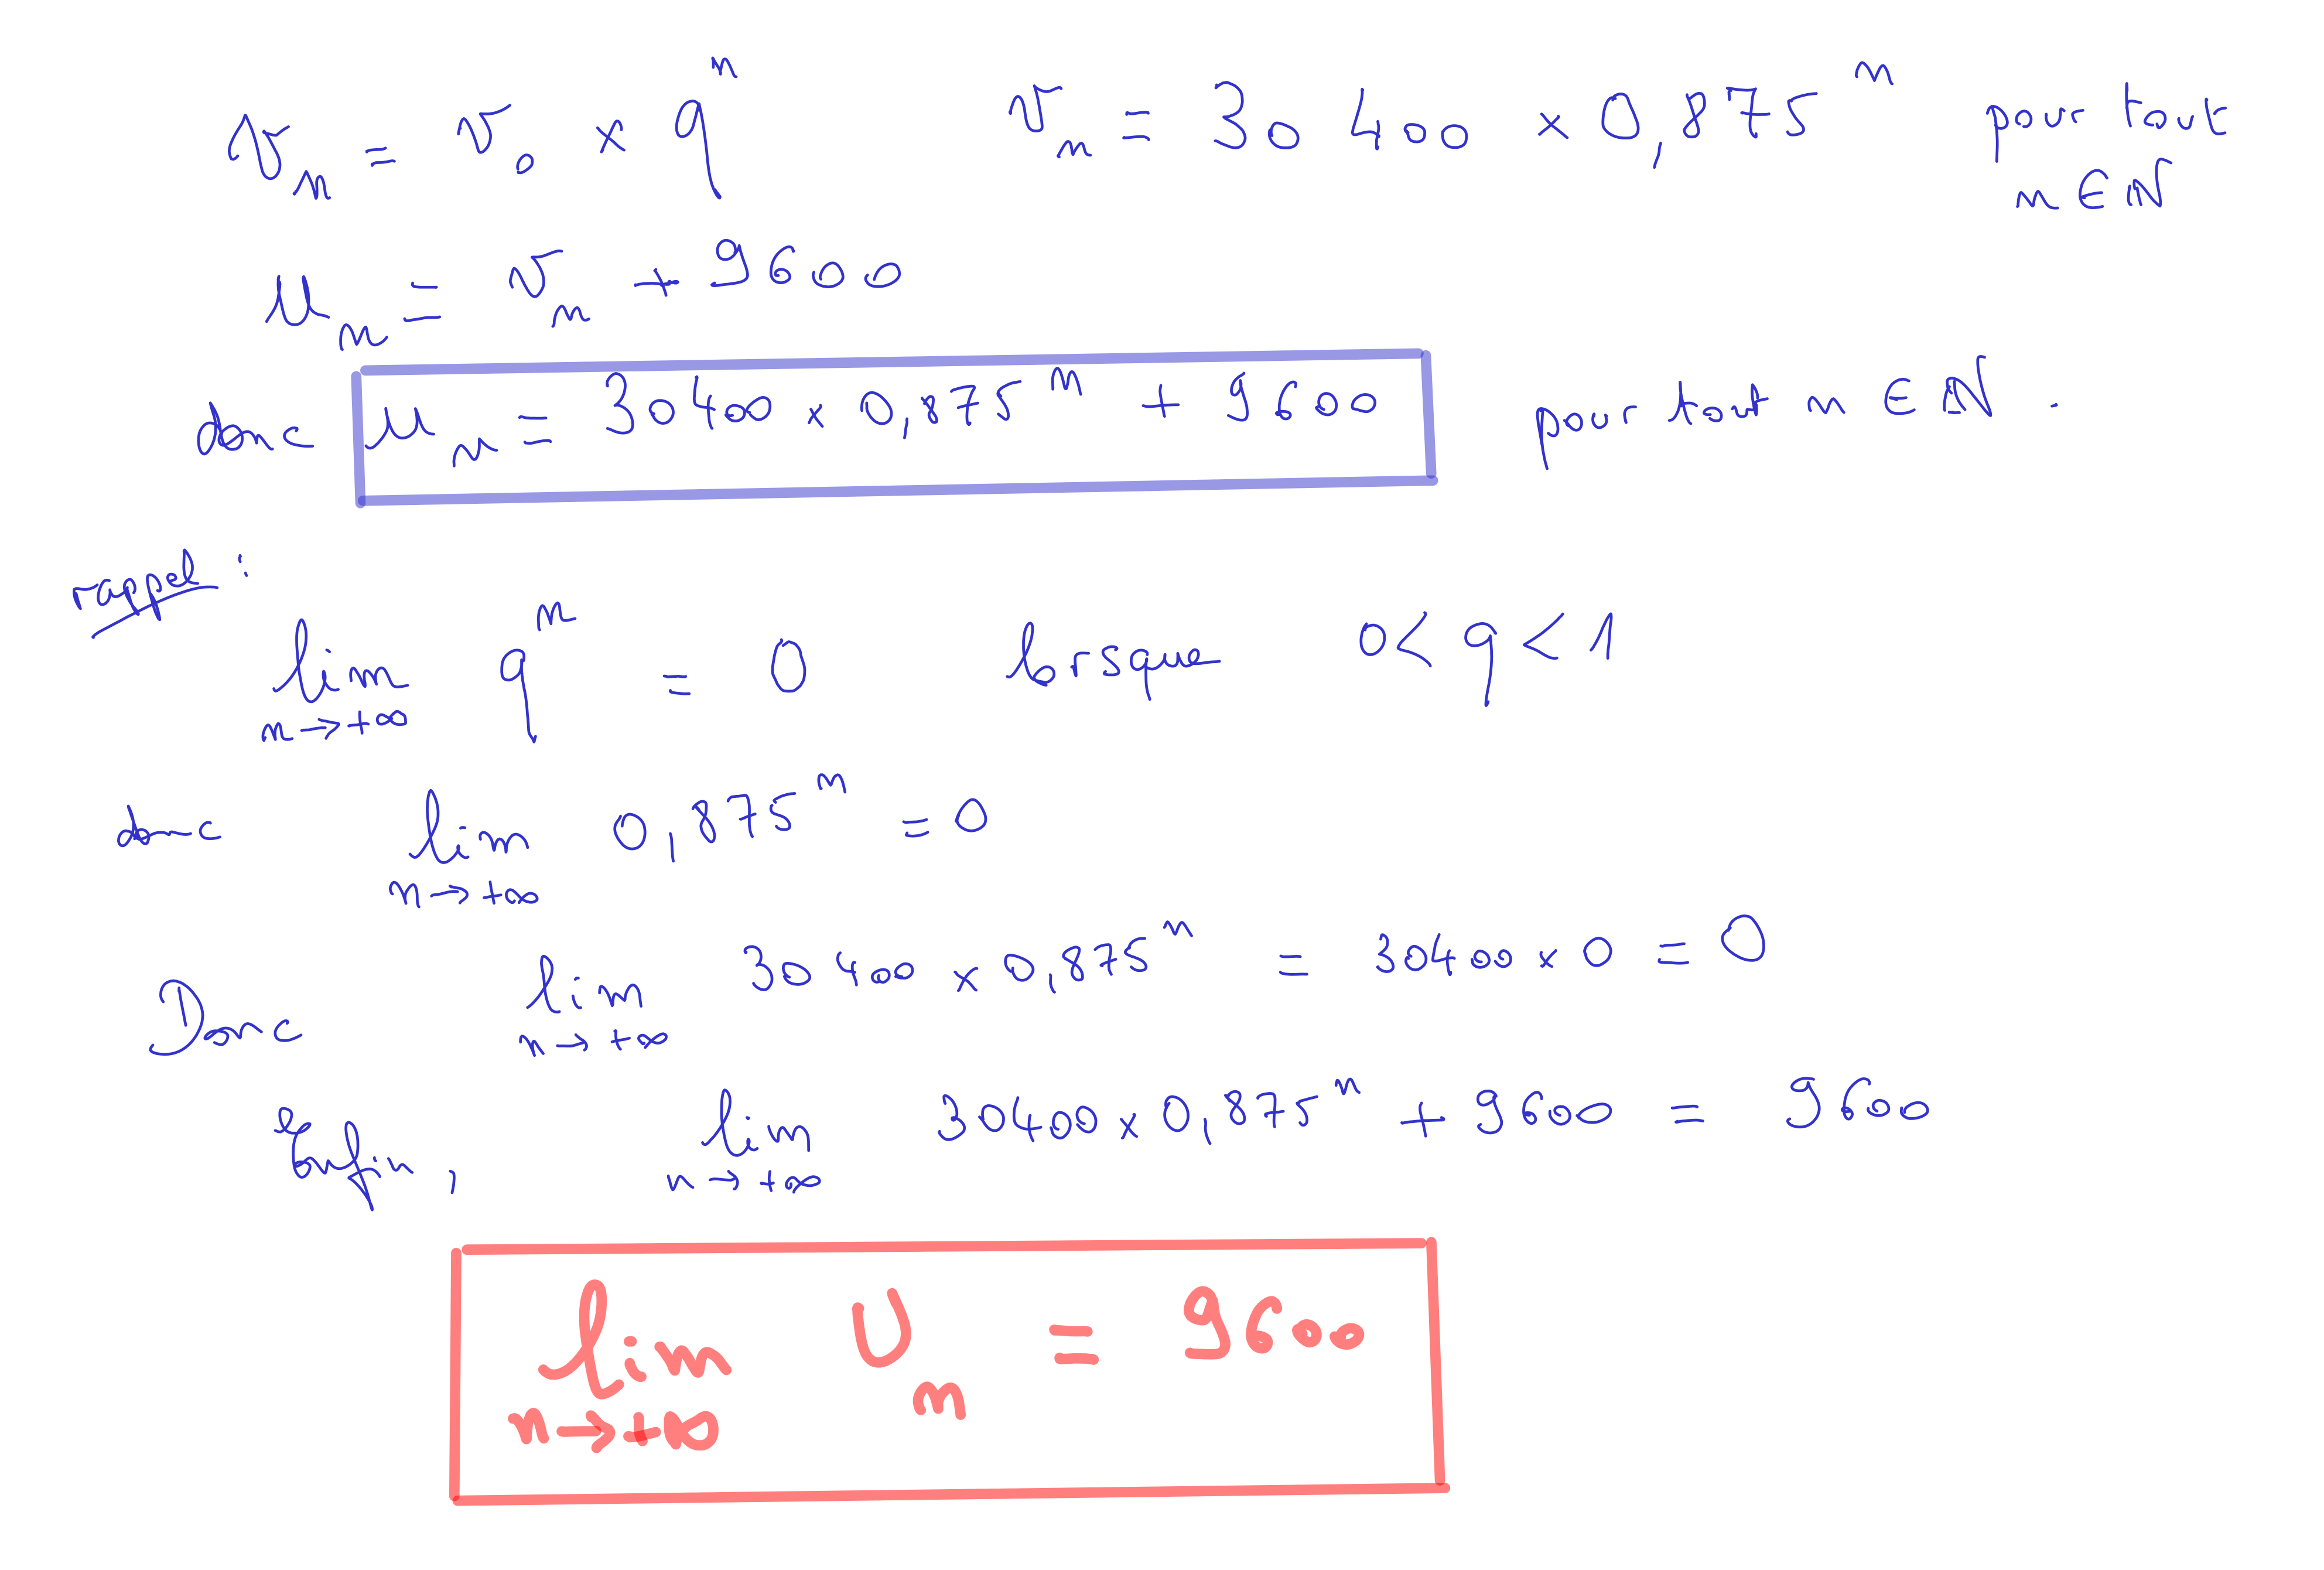 vₙ = v₀ × qⁿ vₙ = 30 400 × 0,875ⁿ pour tout
n ∈ ℕ
uₙ = vₙ + 9600
donc uₙ = 30400 × 0,875ⁿ + 9600 pour tout n ∈ ℕ.
rappel :
lim qⁿ = 0 lorsque 0 < q < 1
n→+∞
donc lim 0,875ⁿ = 0
n→+∞
Donc lim 30400 × 0,875ⁿ = 30400 × 0 = 0
n→+∞
Enfin, lim 30400 × 0,875ⁿ + 9600 = 9600
n→+∞
lim Uₙ = 9600
n→+∞